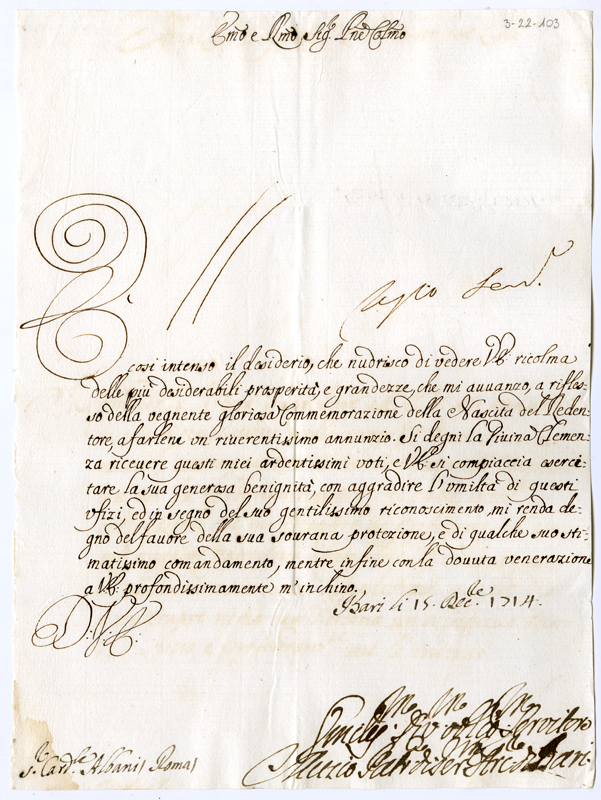 3-22-103
Emo e Rmo Sigr. Pne Colmo
E'
così intenso il desiderio, che nudrisco di vedere VE: ricolma
delle più desiderabili prosperità, e grandezze, che mi auuanzo, a rifles-
so della vegnente gloriosa Commemorazione della Nascita del Reden-
tore, a farlene vn' riuerentissimo annunzio. Si degni la Diuina Clemen-
za riceuere questi miei ardentissimi voti, e VE: si compiaccia eserci-
tare la sua generosa benignità, con aggradire l'vmiltà di questi
vfizi, ed in segno del suo gentilissimo riconoscimento, mi renda de-
gno del fauore della sua sourana protezione, e di qualche suo sti-
matissimo comandamento, mentre infine con la douuta venerazione
a VE: profondissimamente m'inchino.
Bari li 15. Xcbre. 1714.
D: V: E:
Vmilss. Deuotss. Seruitore
Muzio Arc. di Bari
Sr. Cardle Albani / Roma /